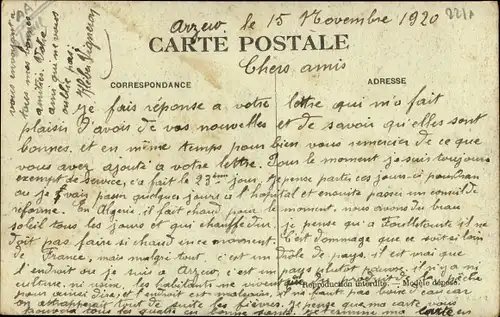 Arzew, le 15 Novembre 1920
CARTE POSTALE
Chers amis
CORRESPONDANCE
ADRESSE
Je fais réponse a votre lettre qui m'a fait
plaisir d'avoir de vos nouvelles et de savoir qu'elles sont
bonnes. et en même temps pour bien vous remercier de ce que
vous avez ajouté a votre lettre. Pour le moment je suis toujours
exempt de service, c'a fait le 23ème jour, Je pense partir ces jours-ci pour Oran
ou je vais passer quelques jours a l'hopital et ensuite passer un conseil de
réforme. En Algérie, il fait chaud pour le moment, nous avons du beau
soleil tous les jours et qui chauffe dur je pense qu'a
doit pas faire si chaud en ce moment. C'est dommage que ce soit si loin
de France, mais malgré tout, c'est un drôle de pays, il est vrai que
l'endroit ou je suis a Arzew, c'est un pays plutot pauvre, il n'y a ni
culture, ni vous, les habitants ne vivent que de la pêche
Reproduction interdite. — Modèle déposé.
pour ainsi dire, et l'endroit est il ne faut pas boire d'eau car
on attraperait tout de suite les fièvres. Je pense que ma carte
vous tous les quatre en bonne santé. Je termine ma carte en
vous envoyant
tous mes bonnes
amitiés. Votre
ami qui ne vous
oublie pas
Vigneron